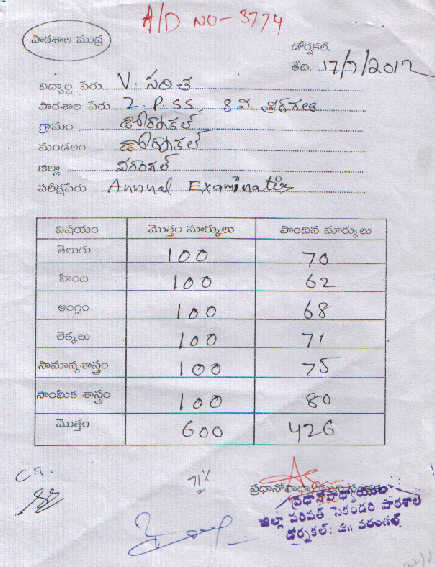 A/D NO - 3774
పాఠశాల ముద్ర
డోర్నకల్
తేది. 17/7/2012
విద్యార్థి పేరు V. సరిత
పాఠశాల పేరు Z. P. S.S.
గ్రామం డోర్నకల్
మండలం డోర్నకల్
జిల్లా వరంగల్
పరీక్షపేరు Annual Examination
విషయం మొత్తం మార్కులు పొందిన మార్కులు
తెలుగు 100 70
హింది 100 62
ఆంగ్లం 100 68
లెక్కలు 100 71
సామాన్యశాస్త్రం 100 75
సాంఘిక శాస్త్రం 100 80
మొత్తం 600 426
71%
ప్రధానోపాధ్యాయుడు
జిల్లా పరిషత్ సెకండరి పాఠశాల
డోర్నకల్: జిల్లా వరంగల్